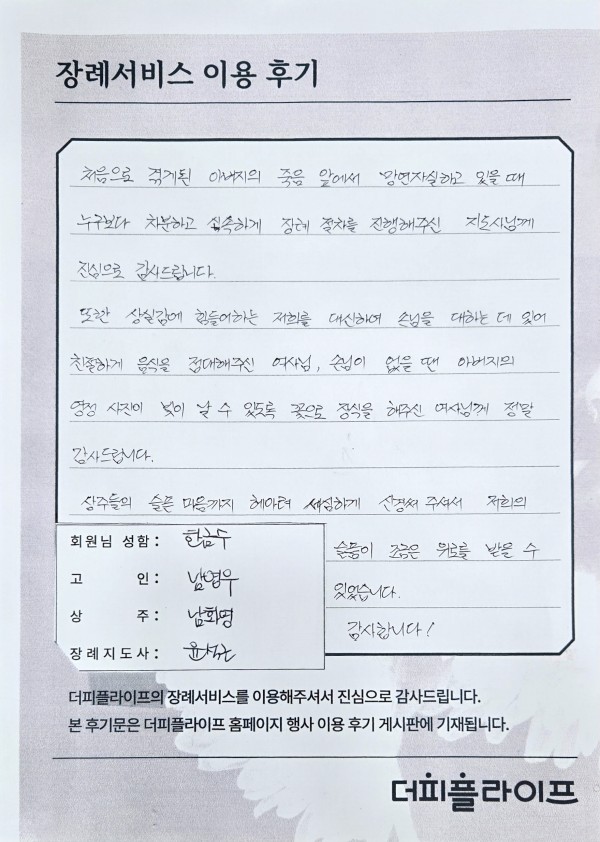 장례서비스 이용 후기
처음으로 겪게된 아버지의 죽음 앞에서 망연자실하고 있을 때
누구보다 차분하고 신속하게 장례 절차를 진행해주신 지도사님께
진심으로 감사드립니다.
또한 상실감에 힘들어하는 저희를 대신하여 손님을 대하는 데 있어
친절하게 음식을 접대해주신 여사님, 손님이 없을 땐 아버지의
영정 사진이 빛이 날 수 있도록 꽃으로 장식을 해주신 여사님께 정말
감사드립니다.
상주들의 슬픈 마음까지 헤아려 세심하게 신경써 주셔서 저희의
슬픔이 조금은 위로를 받을 수
있었습니다.
감사합니다!
회원님 성함 : 한금두
고 인 : 남영우
상 주 : 남화명
장례지도사 :
더피플라이프의 장례서비스를 이용해주셔서 진심으로 감사드립니다.
본 후기문은 더피플라이프 홈페이지 행사 이용 후기 게시판에 기재됩니다.
더피플라이프